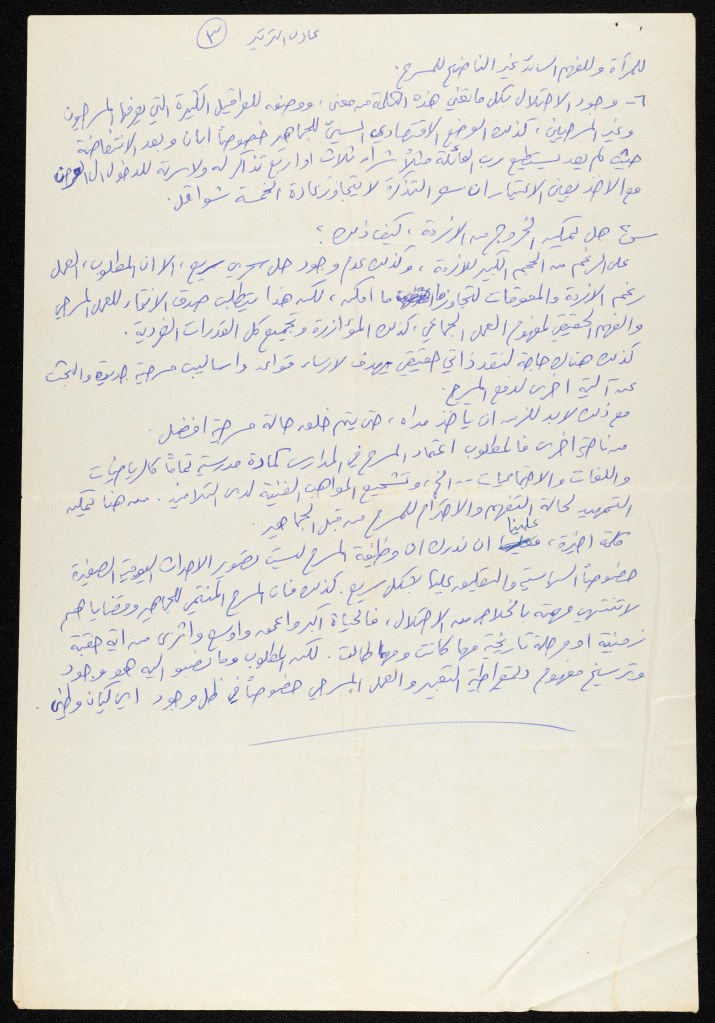 عادل الترتير ٣
للمرأة وللفهم السائد غير الناضج للمسرح.
٦- وجود الاحتلال بكل ما تعني هذه الكلمة من معنى، ووضعه للعراقيل الكثيرة التي يعرفها المسرحيون
وغير المسرحيين، كذلك الوضع الاقتصادي السيئ للجماهير خصوصاً ابان وبعد الانتفاضة
حيث لم يعد يستطيع رب العائلة مثلاً شراء ثلاث او اربع تذاكر له ولاسرته للدخول الى العرض
مع الاخذ بعين الاعتبار ان سعر التذكرة لا يتجاوز عادة الخمسة شواقل.
س٤ هل يمكن الخروج من الازمة، كيف ذلك؟
على الرغم من الحجم الكبير للازمة، وكذلك عدم وجود حل سحري سريع، الا ان المطلوب، العمل
رغم الازمة والمعوقات لتجاوزها ما امكن، لكن هذا يتطلب صدق الانتماء للعمل المسرحي
والفهم الحقيقي لمفهوم العمل الجماعي، كذلك المؤازرة وتجميع كل القدرات الفردية.
كذلك هناك حاجة لنقد ذاتي حقيقي يهدف لارساء قواعد واساليب مسرحية جديدة والبحث
عن آلية اخرى لدفع المسرح.
مع ذلك لابد للزمن ان يأخذ مداه، حتى يتم خلق حالة مسرحية افضل.
من ناحية اخرى فالمطلوب اعتماد المسرح في المدارس كمادة مدرسية تماماً كالرياضيات
واللغات والاجتماعيات -- الخ، وتشجيع المواهب الفنية لدى التلاميذ. من هنا يمكن
التمهيد لحالة التفهم والاحترام للمسرح من قبل الجماهير.
كلمة اخيرة، علينا ان ندرك ان وظيفة المسرح ليست تصوير الاحداث اليومية الصغيرة
خصوصاً السياسية والتعليق عليها بشكل سريع. كذلك فان المسرح المنتمي للجماهير وقضاياهم
لا تنتهي مهمته بالخلاص من الاحتلال، فالحياة اكبر واعمق واوسع واثرى من اية حقبة
زمنية او مرحلة تاريخية مهما كانت ومهما طالت. لكن المطلوب وما نصبو اليه هو وجود
وترسيخ مفهوم ديمقراطية التعبير والعمل المسرحي خصوصاً في ظل وجود اي كيان وطني.